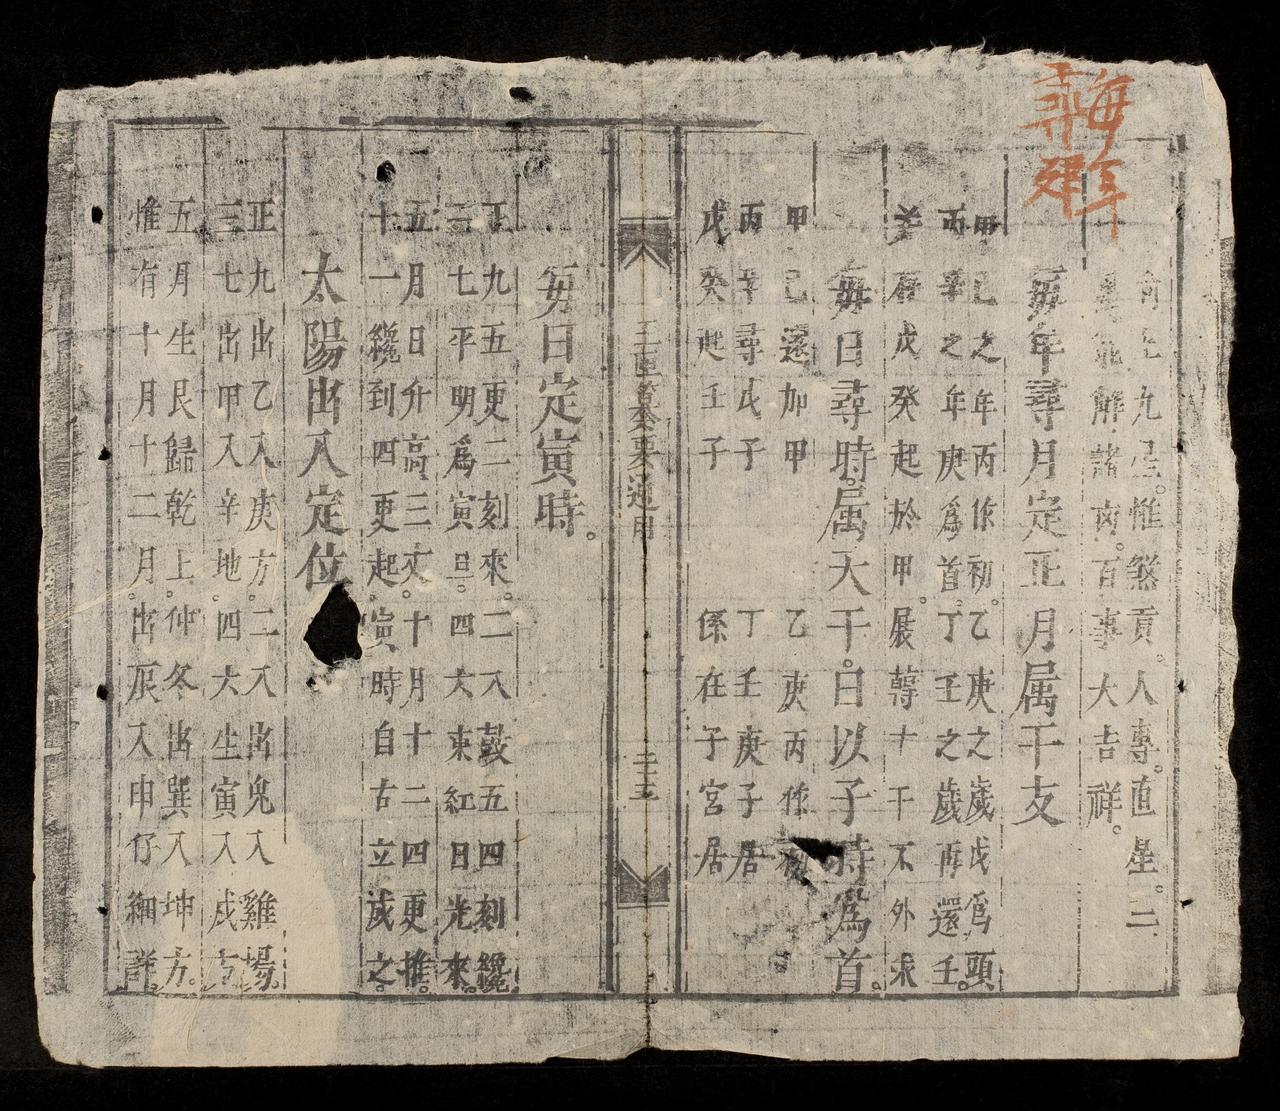 每年
尋
九星。惟煞貢。人專。直星。二
能解諸凶。百事大吉祥。
每年尋月定正月属干支
甲己之年丙作初。乙庚之歲戊爲頭
丙辛之年庚爲首。丁壬之歲再還壬。
戊癸起於甲。展轉十干不外求
每日尋時属天干。日以子時爲首。
甲己還加甲 乙庚丙作初
丙辛尋戊子 丁壬庚子居
戊癸起壬子 係在子宮居
要通用
每日定寅時。
正九五更二刻來。二八鼓五四刻纔
三七平明爲寅旦。四六東紅日光來。
五月日升高三丈。十月十二四更推。
十一纔到四更起。寅時自古立成之。
太陽出入定位
正九出乙入庚方。二八出兔入雞場。
三七出甲入辛地。四六生寅入戌方
五月生艮歸乾上。仲冬出巽入坤方。
惟有十月十二月。出辰入申仔細詳。